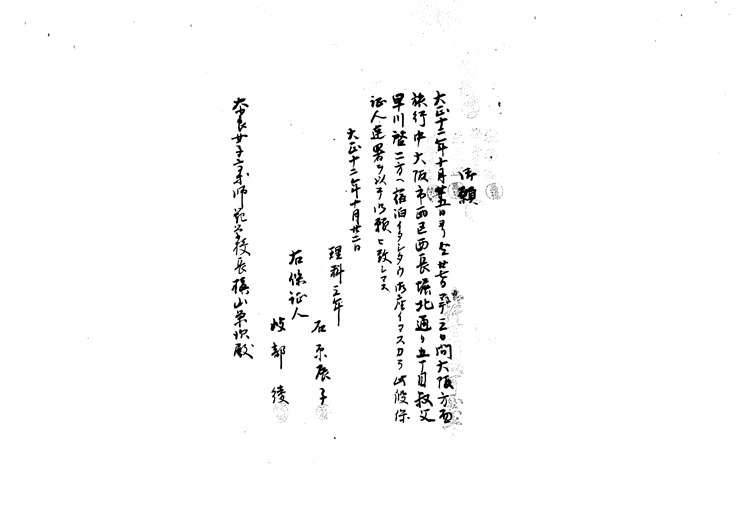 御願
大正十二年十月廿五日ヨリ仝廿七日マデ三日間大阪方面
旅行中大阪市西区西長堀北通リ五丁目叔父
早川啓二方ヘ宿泊イタシタウ御座イマスカラ此段保
証人連署ヲ以テ御願ヒ致シマス
大正十二年十月廿二日
理科三年
石原辰子
右保証人
岐部綾
奈良女子高等師範学校長槇山栄次殿